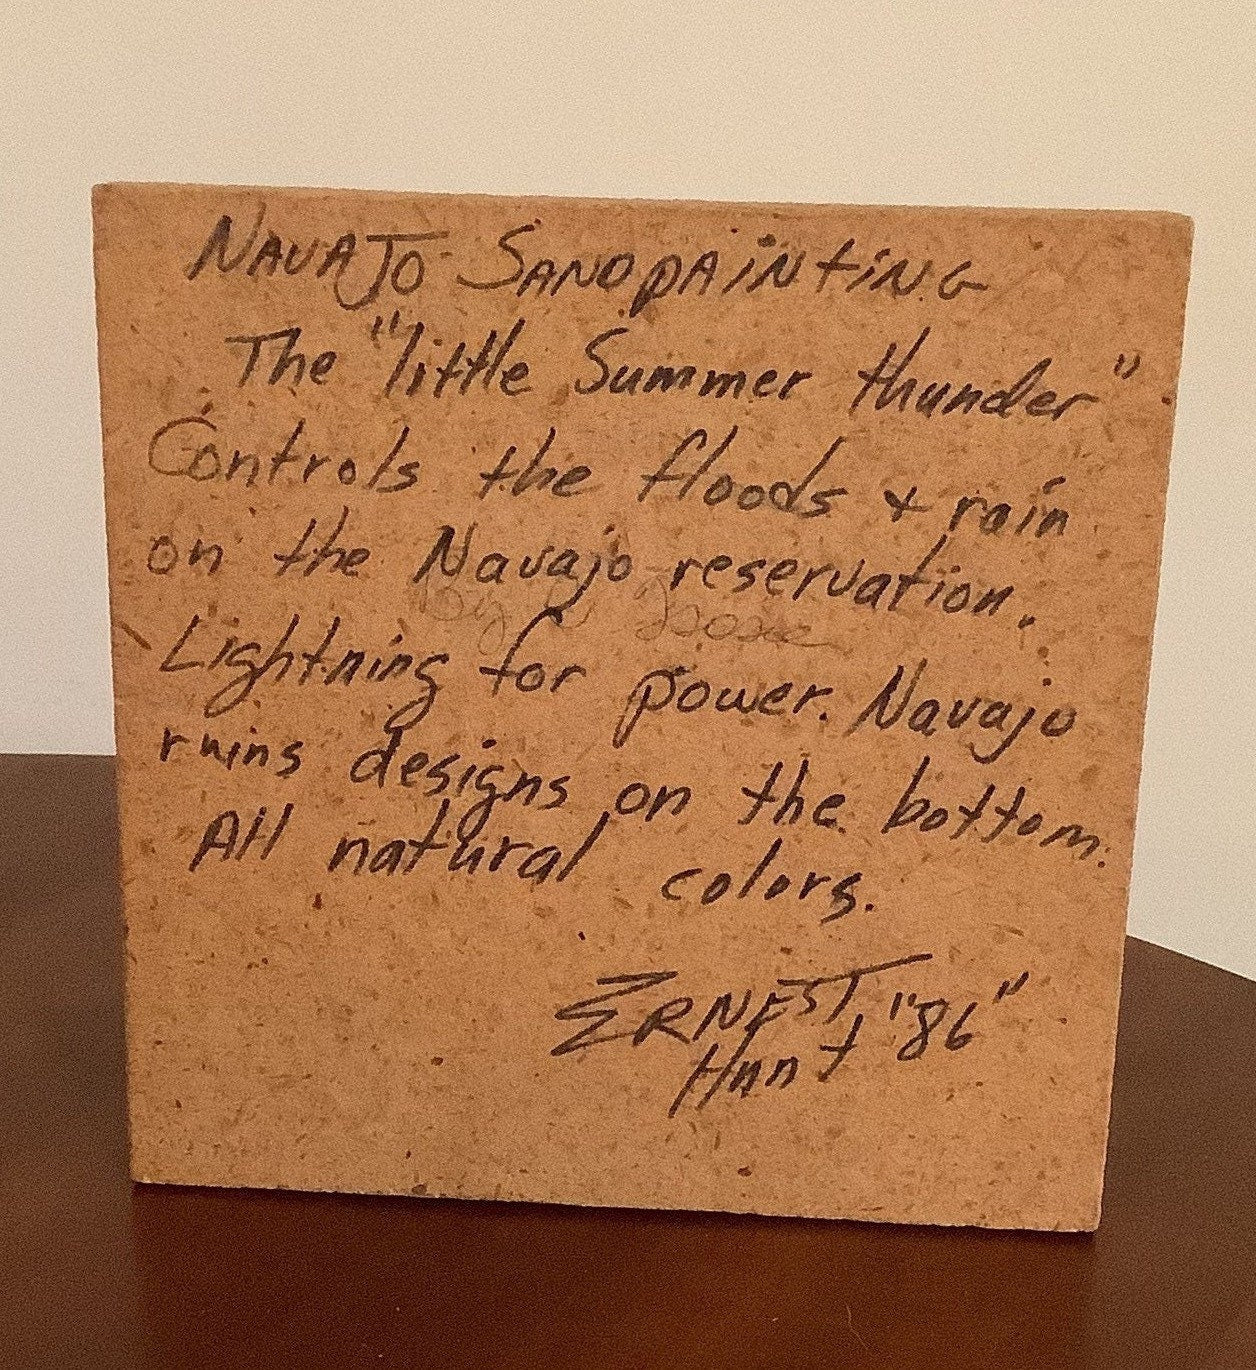 NAVAJO SANDPAINTING
The "little Summer thunder"
Controls the floods & rain
on the Navajo reservation.
By
Lightning for power. Navajo
ruins designs on the bottom.
All natural colors.
ERNEST "86"
Hunt